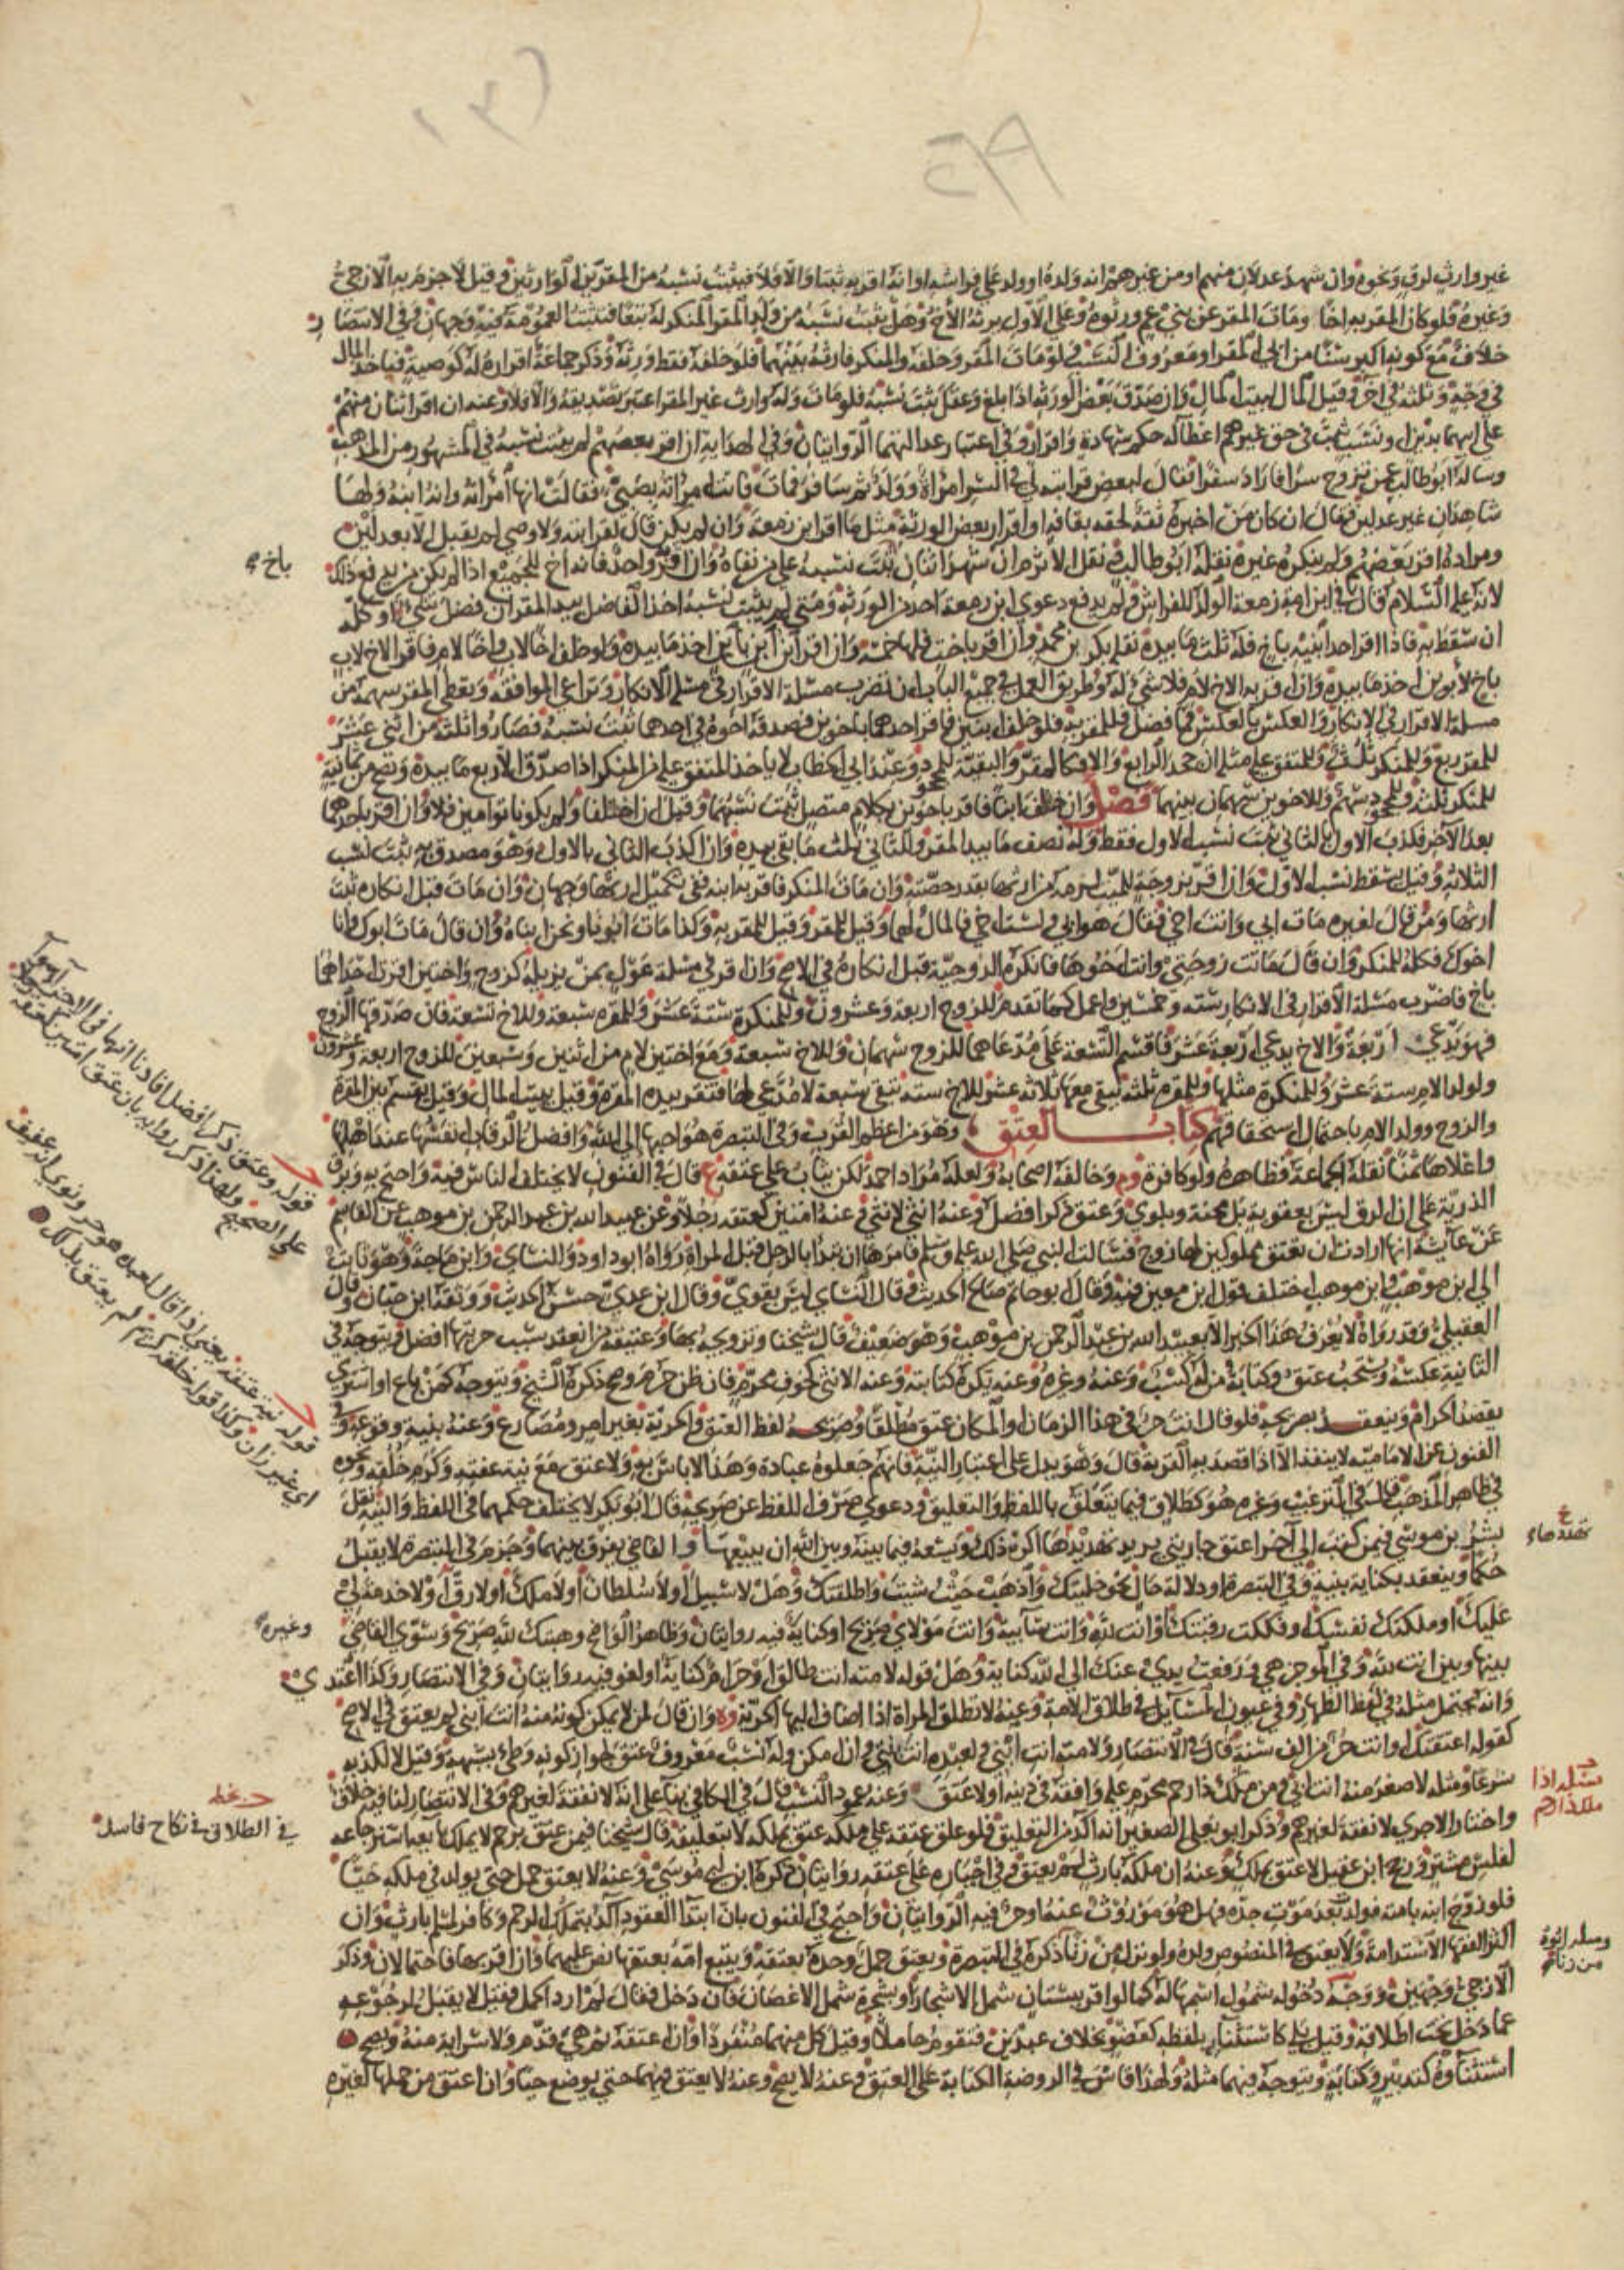 غير وارث لرق ونحوه وان شهد عدلان منهم او من غيرهم انه ولده او ولد على فراشه او انه اقر به ثبتا والا فلا فيثبت نسبه من المقرين الوارثين وقيل لا جزم به الازجي
وغيره فلو كان المقر به اخا ومات المقر عن بني عم ورثوه وعلى الاول يرثه الاخ وهل يثبت نسبه من ولد المقر المنكر له تبعا فتثبت العمومة فيه وجهان وفي الانتصار
خلاف مع كونه اكبر سنا من ابي المقر او معروف النسب فلو مات المقر وخلفه والمنكر فارثه بينهما فلو خلفه فقط ورثه وذكر جماعة اقراره له كوصية فياخذ المال
في وجه وثلثه في اخر وقيل المال لبيت المال وان صدق بعض الورثة اذا بلغ وعقل ثبت نسبه فلو مات وله وارث غير المقر اعتبر تصديقه والا فلا وعنه ان اقر اثنان منهم
على ابيهما بدين او نسب ثبت في حق غيرهم اعطاء له حكم شهادة واقرار وفي اعتبار عدالتهما الروايتان وفي الهداية ان اقر بعضهم لم يثبت نسبه في المشهور من المذهب
وساله ابو طالب عمن تزوج سرا فاراد سفرا فقال لبعض قرابته لي في السر امراة وولد ثم سافر فمات فاتت امراة بصبي فقالت انها امراته وانه ابنه ولها
شاهدان غير عدلين فقال ان كان من اخبره ثقة لحقه بقافة او اقرار بعض الورثة مثل ما اقر ابن زمعة وان لم يكن قال لقرابته ولا وصى لم يقبل الا بعدلين
ومراده اقر بعضهم ولم ينكره غيره نقله ابو طالب ونقل الاثرم ان شهد اثنان ثبت نسبه على من نفاه وان اقر واحد فانه اخ للجميع اذا لم يكن من يدفع ذلك
لانه عليه السلام قال في ابن امة زمعة الولد للفراش ولم يدفع دعوى ابن زمعة احد من الورثة ومتى لم يثبت نسبه اخذ الفاضل بيد المقر ان فضل شي او كله
ان سقط به فاذا اقر احد ابنيه باخ فله ثلث ما بيده نقله بكر بن محمد وان اقر باخت فلها خمسه وان اقر ابن ابن بابن اخذ ما بيده ولو خلف اخا لاب واخا لام فاقر الاخ لاب
باخ لابوين اخذ ما بيده وان اقر به الاخ لام فلا شي له وطريق العمل في جميع الباب ان تضرب مسئلة الاقرار في مسئلة الانكار وتراعى الموافقة ويعطى المقر سهمه من
مسئلة الاقرار في الانكار والعكس بالعكس فما فضل فللمقر به فلو خلف ابنين فاقر احدهما باخوين فصدقه اخوه في احدهما ثبت نسبه فصاروا ثلثة من اثني عشر
للمقر ربع وللمنكر ثلث وللمتفق عليه مثله ان جحد الرابع والا فكالمقر والبقية للمجحود وعند ابي الخطاب لا ياخذ المتفق عليه من المنكر اذا صدق الا ربع ما بيده وتصح من ثمانية
للمنكر ثلثة وللمجحود سهم وللاخوين سهمان بينهما فصل وان خلف ابنا فاقر باخوين بكلام متصل ثبت نسبهما وقيل ان اختلفا ولم يكونا توامين فلا وان اقر باحدهما
بعد الاخر فكذب الاول بالثاني ثبت نسب الاول فقط وله نصف ما بيد المقر وللثاني ثلث ما بقي بيده وان اكذب الثاني بالاول وهو مصدق به ثبت نسب
الثلاثة وقيل يسقط نسب الاول وان اقر بزوجة للميت لزمه من ارثها بقدر حصته وان مات المنكر فاقر به ابنه ففي تكميل ارثها وجهان وان مات قبل انكاره ثبت
ارثها ومن قال لغيره مات ابي وانت اخي فقال هو ابي ولست اخي فالمال لهما وقيل للمقر وقيل للمقر به وكذا مات ابونا ونحن ابناه وان قال مات ابوك وانا
اخوك فكله للمنكر وان قال ماتت زوجتي وانت اخوها فانكره الزوجية قبل انكاره في الاصح وان اقر في مسئلة عول بمن يزيله كزوج واختين اقرت احداهما
باخ فاضرب مسئلة الاقرار في الانكار ستة وخمسين واعمل كما تقدم للزوج اربعة وعشرون وللمنكرة ستة عشر وللمقرة سبعة وللاخ تسعة فان صدقها الزوج
فهو يدعي اربعة والاخ يدعي اربعة عشر فاقسم التسعة على مدعاهما للزوج سهمان وللاخ سبعة ومع اختين لام من اثنين وسبعين للزوج اربعة وعشرون
ولولد الام ستة عشر وللمنكرة مثلها وللمقرة ثلثة يبقى معها ثلاثة عشر للاخ ستة تبقى سبعة لا مدعي لها فتقر بيد المقرة وقيل بيت المال وقيل يقسم بين المقرة
والزوج وولد الام باحتمال استحقاقهم كتاب العتق وهو من اعظم القرب وفي التبصرة هو احبها الى الله وافضل الرقاب انفسها عند اهلها
واغلاها ثمنا نقله الجماعة فظاهره ولو كافرة وم وخالفه اصحابه ولعله مراد احمد لكن يثاب على عتقه ع قال في الفنون لا يختلف الناس فيه واحتج به وبرق
الذرية على ان الرق ليس بعقوبة بل محنة وبلوى وعتق ذكر افضل وعنه انثى لانثى وعنه امتين كعتقه رجلا وعن عبيد الله بن عبد الرحمن بن موهب عن القاسم
عن عائشة انها ارادت ان تعتق مملوكين لها زوج فسالت النبي صلى الله عليه وسلم فامرها ان تبدا بالرجل قبل المراة رواه ابو داود والنساي وابن ماجة وهو ثابت
الى ابن موهب وابن موهب اختلف قول ابن معين فيه وقال ابو حاتم صالح الحديث وقال النساي ليس بقوي وقال ابن عدي حسن الحديث ووثقه ابن حبان وقال
العقيلي وقد رواه لا يعرف هذا الخبر الا بعبيد الله بن عبد الرحمن بن موهب وهو ضعيف قال شيخنا وتزويجه بها وعتيقة من انعقد سبب حريتها افضل ويتوجه في
الثانية عكسه ويستحب عتق وكتابة من له كسب وعنه وغيره وعنه تكره كتابته وعنه الانثى لخوف محرم فان ظن حرم وصح ذكره الشيخ ويتوجه كمن باع او اشترى
بقصد الحرام وينعقد بصريحه فلو قال انت حر في هذا الزمان او المكان عتق مطلقا وصريحه لفظ العتق والحرية بغير امر ومضارع وعنه بنية وقوعه وفي
الفنون عن الامامية لا ينفذ الا اذا قصد به القربة قال وهو يدل على اعتبار النية فانهم جعلوه عبادة وهذا لا باس به ولا عتق مع نية عفته وكرم خلقه ونحوه
في ظاهر المذهب قاله في الترغيب وغيره هو كطلاق فيما يتعلق باللفظ والتعليق ودعوى صرف اللفظ عن صريحه قال ابو بكر لا يختلف حكمهما في اللفظ والنية نقل
بشر بن موسى فيمن كتب الى اخر اعتق جاريتي يريد تهديدها اكره ذلك ويسعه فيما بينه وبين الله ان يبيعها والقاضي يفرق بينهما وجزم في التبصرة لا يقبل
حكما وينعقد بكناية بنية وفي التبصرة او دلالة حال نحو خليتك واذهب حيث شئت واطلقتك وهل لا سبيل او لا سلطان او لا ملك او لا رق او لا خدمة لي
عليك او ملكتك نفسك وفككت رقبتك او انت لله وانت سايبة وانت مولاي صريح او كناية فيه روايتان وظاهر الواضح وهبتك لله صريح وسوى القاضي
بينها وبين انت لله وفي الموجز هي ورفعت يدي عنك الى الله كناية وهل قوله لامته انت طالق او حرام كناية او لغو فيه روايتان وفي الانتصار وكذا اعتدي
وانه يحتمل مثله في لفظ الظهار وفي عيون المسايل في طلاق الامة وعنه لا تطلق المراة اذا اضاف اليها الحرية وه وان قال لمن لا يمكن كونه منه انت ابني لم يعتق في الاصح
كقوله اعتقتك او انت حر من الف سنة قال في الانتصار ولامته انت ابني ولعبده انت بنتي وان امكن وله نسب معروف عتق لجواز كونه وطئ بشبهة وقيل لا لكذبه
شرعا ومثله لاصغر منه انت ابي ومن ملك ذا رحم محرم عليه وافقه في دينه او لا عتق وعنه عمود النسب قال في الكافي بناء على انه لا نفقة لغيرهم وفي الانتصار لنا فيه خلاف
واختار الاجري لا نفقة لغيرهم وذكر ابو يعلى الصغير انه اكد من التعليق فلو علق عتقه على ملكه عتق بملكه لا بتعليقه قال شيخنا فيمن عتق برحم لا يملك بايعه استرجاعه
لفلس مشتر ورجح ابن عقيل لا عتق بملك وعنه ان ملكه بارث لم يعتق وفي اجباره على عتقه روايتان ذكره ابن ابي موسى وعنه لا يعتق حمل حتى يولد في ملكه حيا
فلو زوج ابنه بامته فولدت بعد موت جده فهل هو موروث عنه او حر فيه الروايتان واحتج في الفنون بان ابتدا العقود اكد بتملك الرحم وكافر لمسلم بارث وان
اكثر الفقها الاستدامة ولا يعتق في المنصوص ولده ولو نزل من زنا ذكره في التبصرة ويعتق حمل وحده بعتقه ويتبع امه بعتقها نص عليهما وان اقر بها فاحتمالان وذكر
الازجي وجهين ووجه دخوله شمول اسمها له كما لو اقر ببستان شمل الاشجار او بشجرة شمل الاغصان فان دخل فقال لم ارد الحمل فقيل لا يقبل لرجوعه
عما دخل تحت اطلاقه وقيل بلى كاستثنايه بلفظه كعضو بخلاف عبدين فتقوم حاملا وقيل كل منهما منفردا وان اعتقه ثم هي قدم ولا سراية منه ويصح
استثناوه كتدبير وكتابة ويتوجه فيهما مثله ولهذا قاس في الروضة الكتابة على العتق وعنه لا يصح وعنه لا يعتق فيهما حتى يوضع حيا وان اعتق من حملها لغيره
باخ
قوله وعتق ذكر افضل
على الصحيح
قوله نية عفته يعني اذا قال لعبده هو حر ونوى انه عفيف
اي غير زان وكذا قوله حلقه كريم لم يعتق بذلك
وغيره
خط
في الطلاق في نكاح فاسد
تهددها
مسئلة اذا
ملك ذا رحم
من زنا